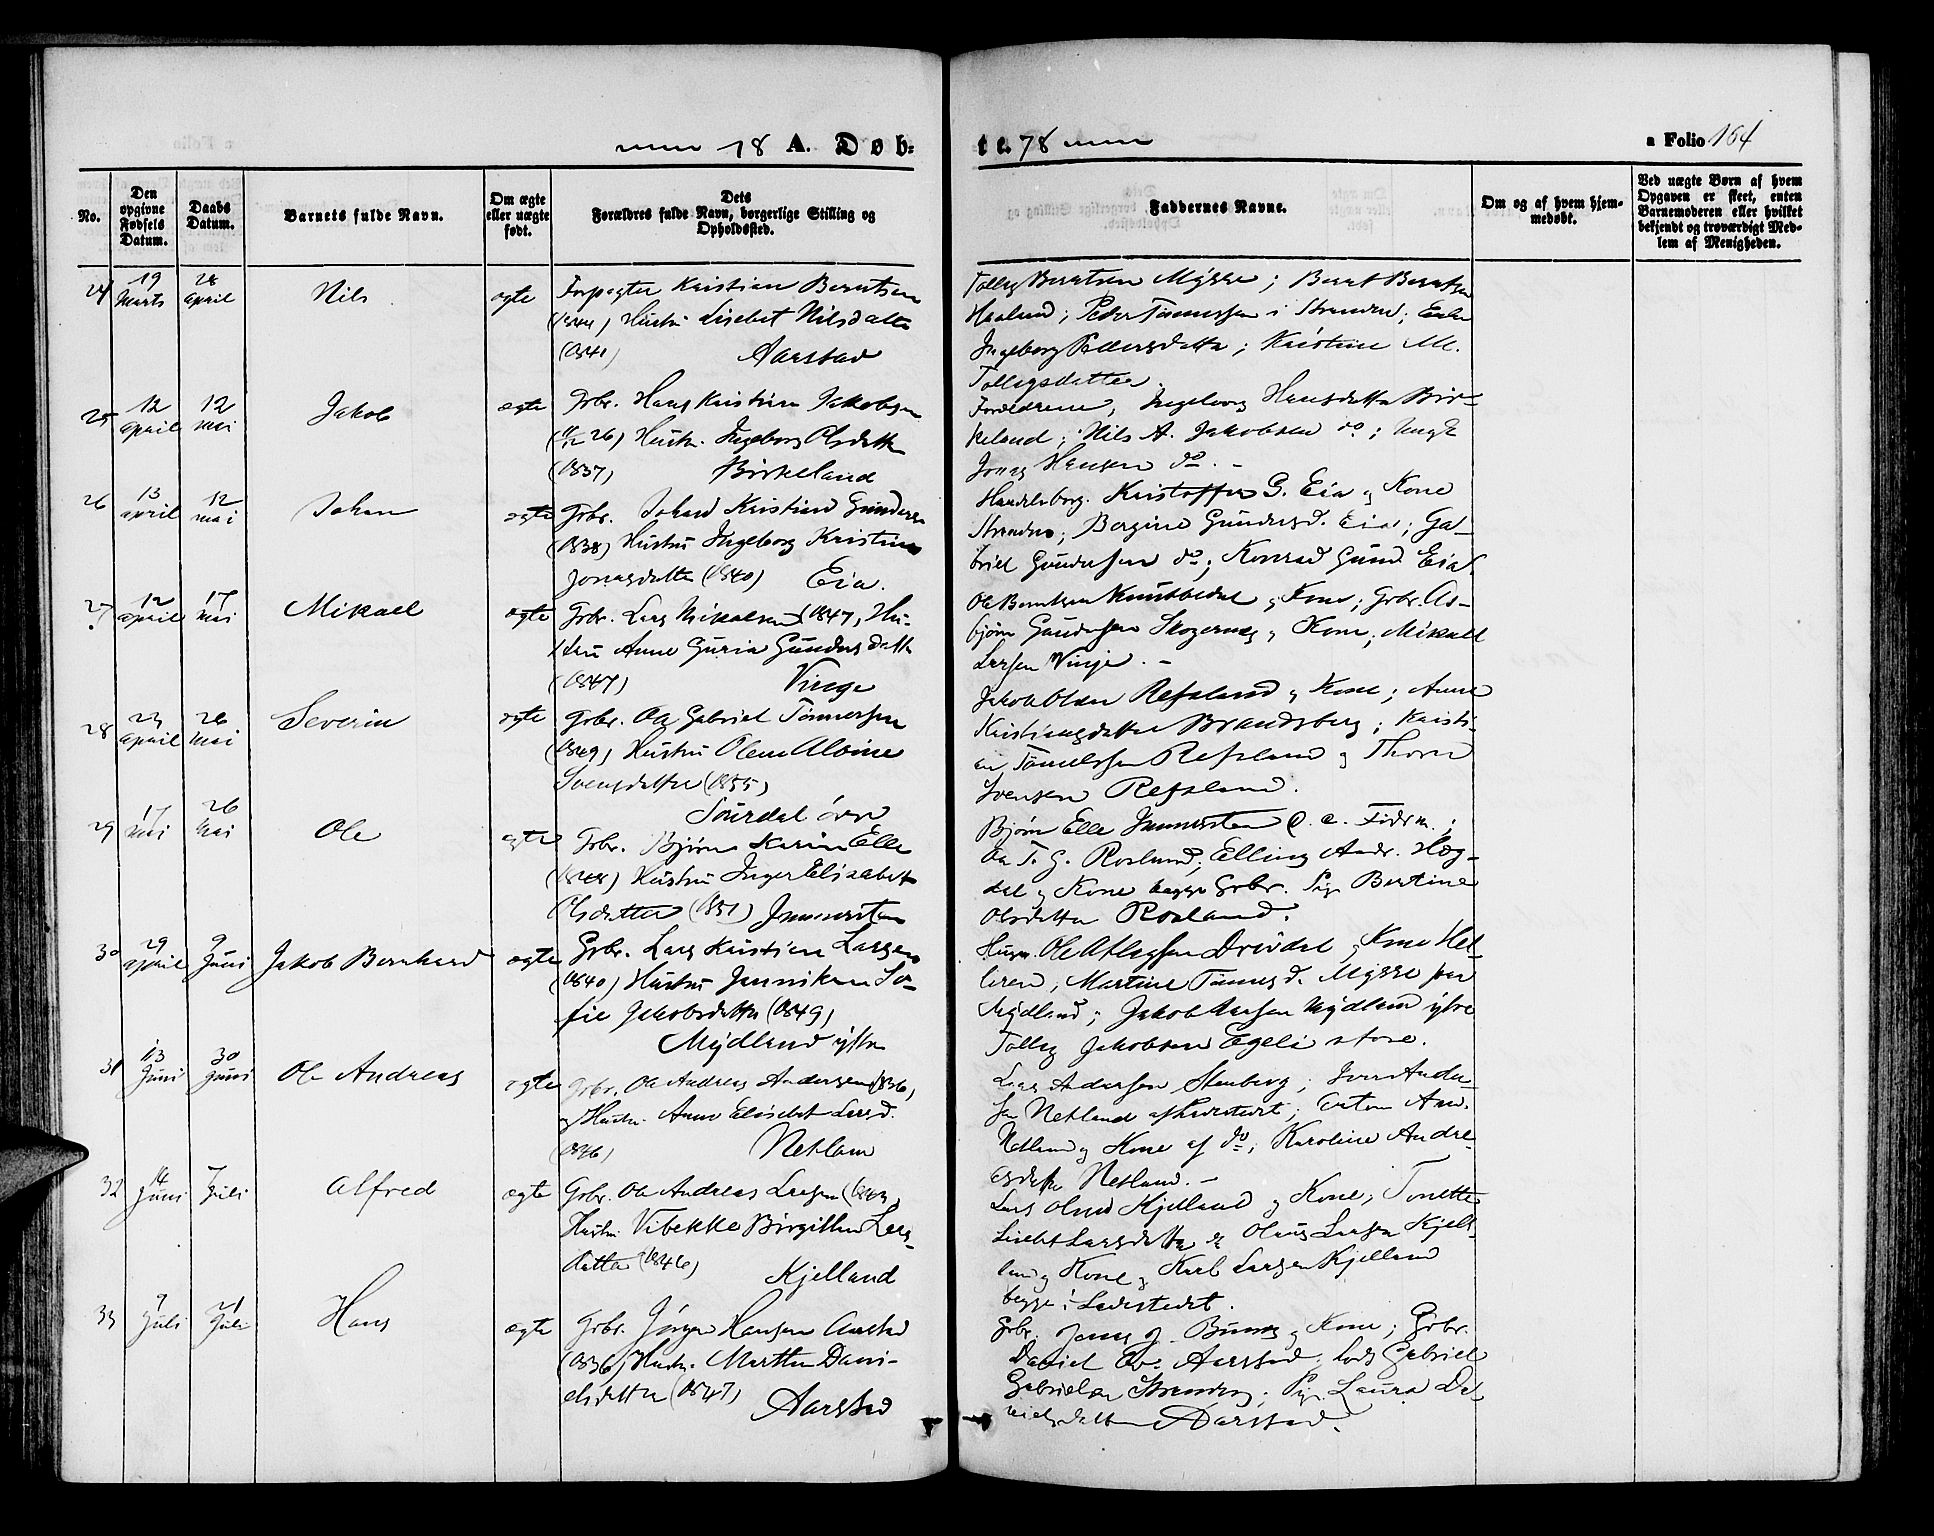 18 A. Døb-
te. 78
a Folio 164
No.
Den opgivne Fødsels Datum.
Daabs Datum.
Barnets fulde Navn.
Om ægte eller uægte født.
Dets Forældres fulde Navn, borgerlige Stilling og Opholdssted.
Faddernes Navne.
Om og af hvem hjemmedøbt.
Ved uægte Børn af hvem Opgaven er skeet, enten Barnemoderen eller hvilket bekjendt og troværdigt Medlem af Menigheden.
24 19 Marts 28 april Nils ægte
Forpagter Kristian Berntsen
(1844) Hustru Lisebet Nilsdatter
(1841) Aarstad
Tolleg Berntsen Mysse; Bernt Berntsen
Haaland; Peder Tønnessen i Stranden; Enke
Ingeborg Pedersdatter; Kristine M.
Tollegsdatter.
25 12 april 12 mai Jakob ægte
Grbr. Hans Kristian Jakobsen
26) Hustr. Ingeborg Olsdatter
(1837) Birkeland
Forældrene, Ingeborg Hansdatter Bir-
keland; Nils A. Jakobsen do; Ungk
Jonas Hansen do. -
26 13 april 12 mai Johan ægte
Grbr. Johan Kristian Gunders
(1838) Hustru Ingeborg Kristine
Jonasdatter (1840) Eia.
Handelsborg. Kristoffer G. Eia og Kone
Stranden; Bergine Gundersd. Eia; Ga-
briel Gundersen do; Konrad Gund. Eia.
27 12 april 17 mai Mikael ægte
Grbr. Lars Mikalsen (1847, Hu-
stru Anne Guria Gundersdatter
(1847) Vinge
Ole Berntsen og Kone; Grbr. As-
bjørn Gundersen Skogernes og Kone; Mikael
Larsen Vinje. -
28 23 april 26 mai Severin ægte
Grbr. Aa Gabriel Tønnesen
(1849) Hustru Olene Alvine
Svensdatter (1855)
Surdal øvre
Jakob Olsen Refsland og Kone; Anne
Kristiansdatter Brandsberg; Kristi-
an Tønnessen Refsland og Thore
Svensen Refsland.
29 17 mai 26 mai Ole ægte
Grbr. Bjørn Karin Elle
(1848) Hustru Inger Elisabet
Olsdatter (1851) Immersten
Bjørn Elle Immersten
Aa T. G. Rosland; Elling Andr. Hæg-
dal og Kone begge Grbr. Pige Bertine
Olsdatter Rosland.
30 29 april 9 Juni Jakob Bernhard ægte
Grbr. Lars Kristian Larsen
(1840) Hustru Jenniken So-
fie Jakobsdatter (1849)
Mydland ystre
Husm. Ole Atlagsen Drivdal og Kone Hel-
leren, Martine Tønnesd. Mysse paa
Mydland; Jakob Aasen Mydland ystre
Tolleg Jakobsen Egeli store.
31 13 Juni 30 Juni Ole Andreas ægte
Grbr. Ole Andreas Andersen (1836)
og Hustr. Anne Elisebet Larsd.
(1846) Netland
Lars Andersen Stenberg; Iver Ander-
sen Netland af Ladestedet; Anton And.
Netland og Kone af do; Karoline Andre-
asdatter Netland. -
32 14 Juni 7 Juli Alfred ægte
Grbr. Ole Andreas Larsen (1843)
Hustru Vibekke Birgitte Lars-
datter (1846)
Kjelland
Lars Olsen Kjelland og Kone; Tonette
Lisebet Larsdatter og Olaus Larsen Kjel-
land og Kone og Karl Larsen Kjelland
begge i Ladestedet.
33 7 Juli 21 Juli Hans ægte
Grbr. Jørgen Hansen Aarstad
(1836) Hustr. Marthe Dani-
elsdatter (1847)
Aarstad
Grbr. Jonas J. og Kone; Grbr.
Daniel Aarstad; Lods Gabriel
Gabrielsen Stranden; Pige Laura Da-
nielsdatter Aarstad.